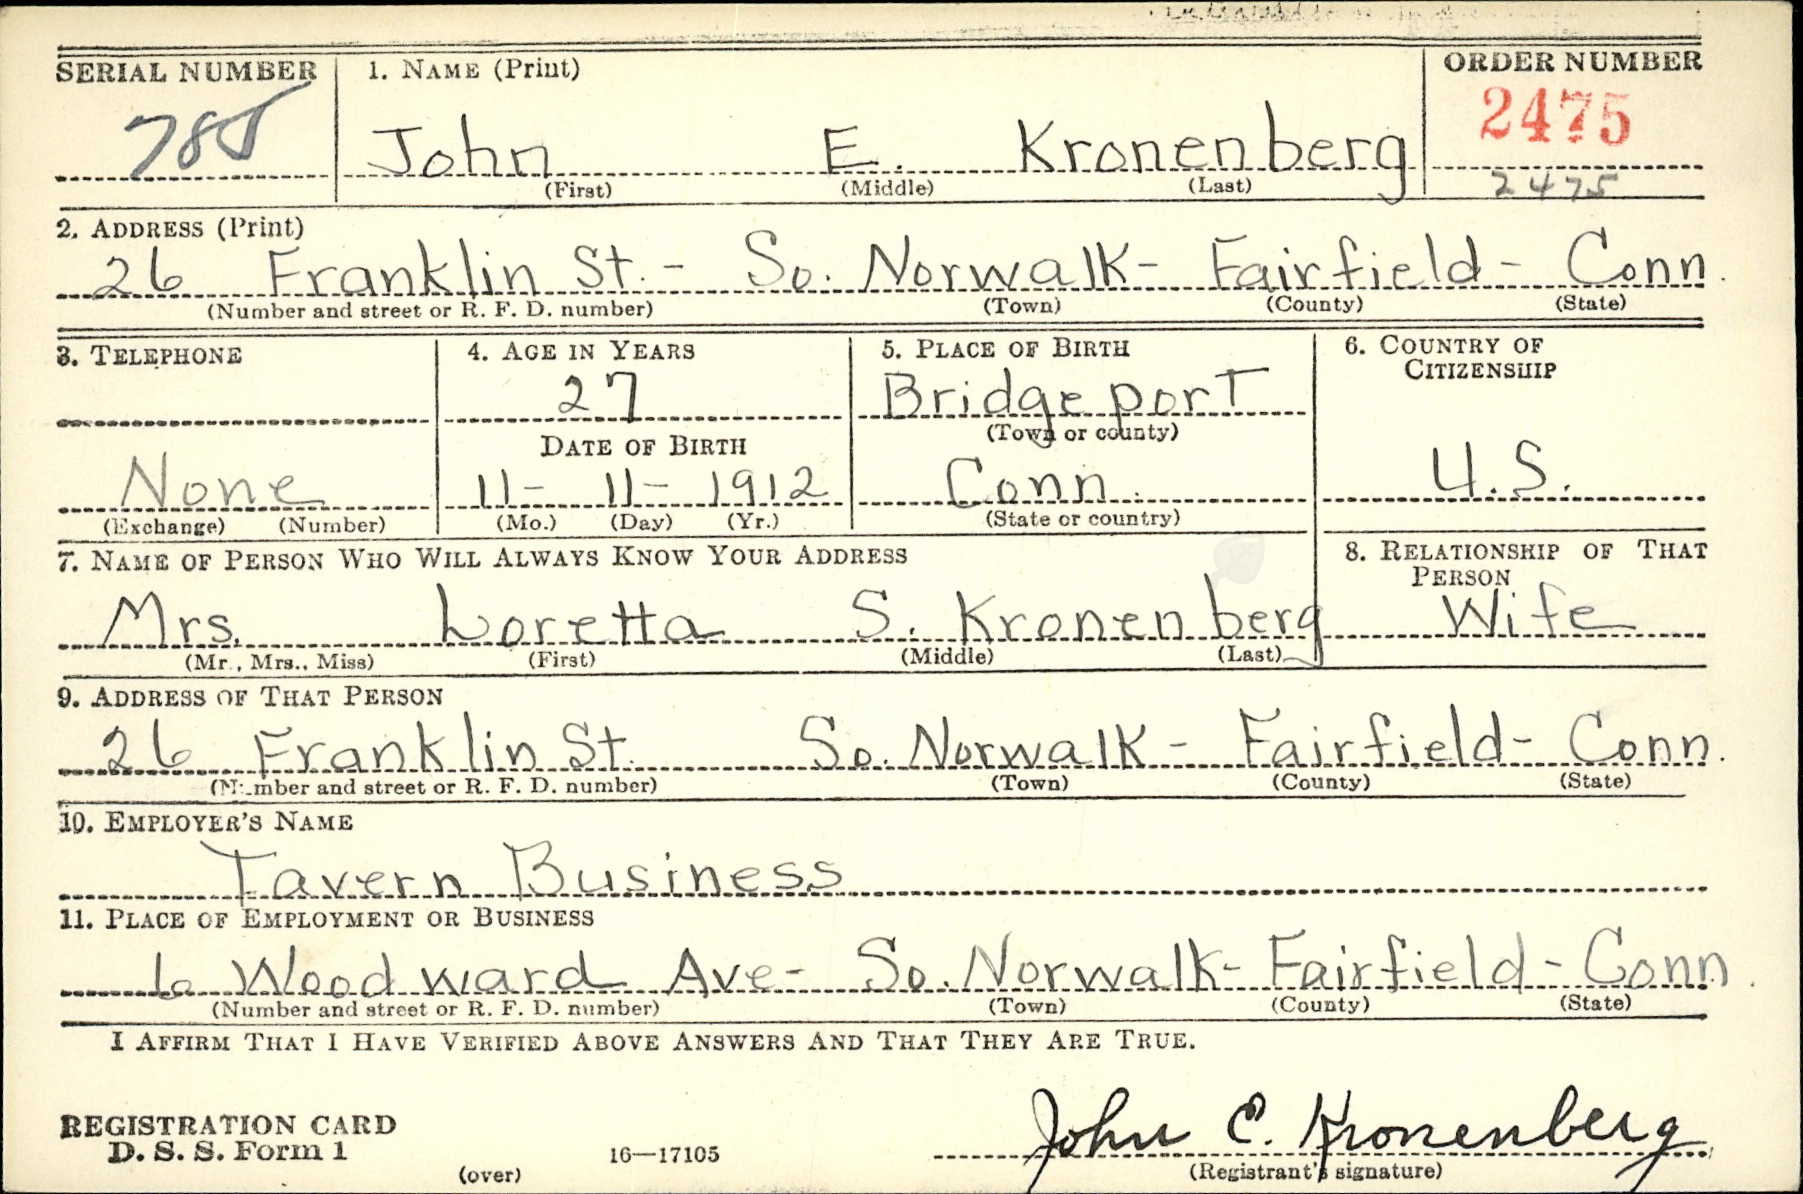 SERIAL NUMBER 1. NAME (Print) ORDER NUMBER
785 John E. Kronenberg 2475
(First) (Middle) (Last) 2475
2. ADDRESS (Print)
26 Franklin St. - So. Norwalk - Fairfield - Conn.
(Number and street or R. F. D. number) (Town) (County) (State)
3. TELEPHONE 4. AGE IN YEARS 5. PLACE OF BIRTH 6. COUNTRY OF CITIZENSHIP
27 Bridgeport
DATE OF BIRTH (Town or county)
None 11- 11- 1912 Conn. U.S.
(Exchange) (Number) (Mo.) (Day) (Yr.) (State or country)
7. NAME OF PERSON WHO WILL ALWAYS KNOW YOUR ADDRESS 8. RELATIONSHIP OF THAT PERSON
Mrs. Loretta S. Kronenberg Wife
(Mr., Mrs., Miss) (First) (Middle) (Last)
9. ADDRESS OF THAT PERSON
26 Franklin St. So. Norwalk - Fairfield - Conn.
(Number and street or R. F. D. number) (Town) (County) (State)
10. EMPLOYER'S NAME
Tavern Business
11. PLACE OF EMPLOYMENT OR BUSINESS
6 Woodward Ave - So. Norwalk - Fairfield - Conn.
(Number and street or R. F. D. number) (Town) (County) (State)
I AFFIRM THAT I HAVE VERIFIED ABOVE ANSWERS AND THAT THEY ARE TRUE.
John E. Kronenberg
REGISTRATION CARD
D. S. S. Form 1 16—17105
(over) (Registrant's signature)